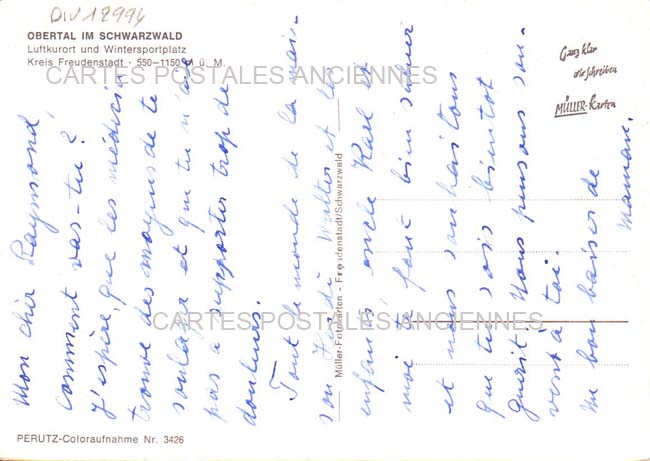 DIV 12994
OBERTAL IM SCHWARZWALD
Luftkurort und Wintersportplatz
Kreis Freudenstadt · 550–1150 M ü. M.
CARTES POSTALES ANCIENNES
Ganz klar
wir schreiben
MÜLLER-Karten
Mon cher Raymond,
comment vas-tu?
J'espère, que les médecins
trouve des moyens de te
soulager et que tu n'aie
pas à supporter trop de
douleurs.
Tout le monde de la mai-
son Walter et les
enfants, oncle Karl et
moi te font bien saluer
et nous souhaitons
que tu sois bientôt
guérit. Nous pensons sou-
vent à toi.
Un bon baiser de
Maman.
Müller-Fotokarten - Freudenstadt/Schwarzwald
CARTES POSTALES ANCIENNES
PERUTZ-Coloraufnahme Nr. 3426